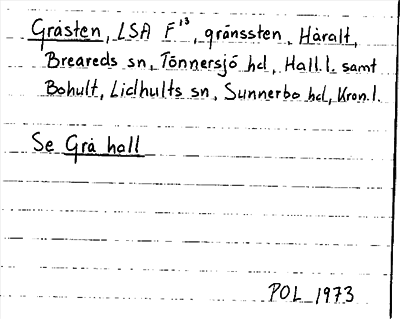 Gråsten, LSA F¹³, gränssten, Håralt,
Breareds sn, Tönnersjö hd, Hall.l. samt
Bohult, Lidhults sn, Sunnerbo hd, Kron.l.
Se Grå hall
POL 1973